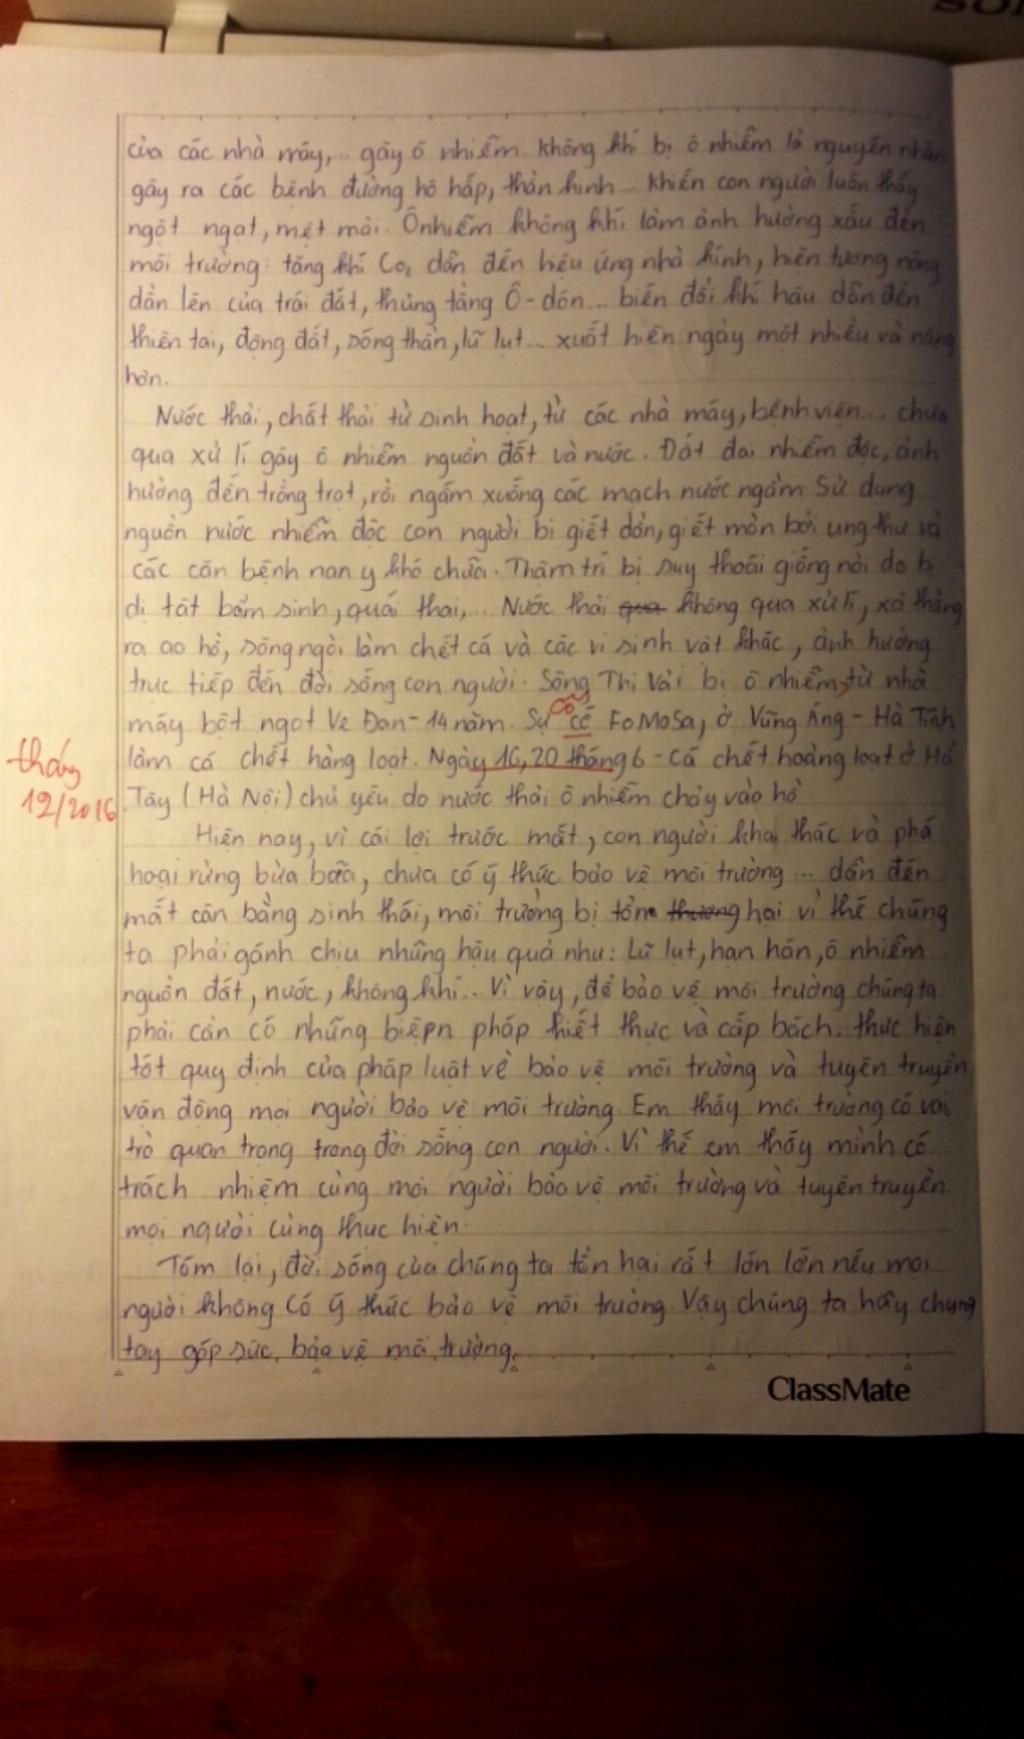 của các nhà máy,... gây ô nhiễm. không khí bị ô nhiễm là nguyên nhân
gây ra các bệnh đường hô hấp, thần kinh... khiến con người luôn thấy
ngột ngạt, mệt mỏi. Ônhiễm không khí làm ảnh hưởng xấu đến
môi trường: tăng khí Co₂ dẫn đến hiệu ứng nhà kính, hiện tượng nóng
dần lên của trái đất, thủng tầng Ô-dôn... biến đổi khí hậu dẫn đến
thiên tai, động đất, sóng thần, lũ lụt... xuất hiện ngày một nhiều và nặng
hơn.
Nước thải, chất thải từ sinh hoạt, từ các nhà máy, bệnh viện... chưa
qua xử lí gây ô nhiễm nguồn đất và nước. Đất đai nhiễm độc, ảnh
hưởng đến trồng trọt, rồi ngấm xuống các mạch nước ngầm. Sử dụng
nguồn nước nhiễm độc con người bị giết dần, giết mòn bởi ung thư và
các căn bệnh nan y khó chữa. Thậm trí bị suy thoái giống nòi do bị
dị tật bẩm sinh, quái thai,... Nước thải qua không qua xử lí, xả thẳng
ra ao hồ, sông ngòi làm chết cá và các vi sinh vật khác, ảnh hưởng
trực tiếp đến đời sống con người. Sông Thị Vải bị ô nhiễm, từ nhà
máy bột ngọt Ve Đan - 14 năm. Sự cố cế FoMoSa, ở Vũng Áng - Hà Tĩnh
làm cá chết hàng loạt. Ngày 16, 20 tháng 6 - Cá chết hoàng loạt ở Hồ
tháng 12/2016
Tây (Hà Nội) chủ yếu do nước thải ô nhiễm chảy vào hồ
Hiện nay, vì cái lợi trước mắt, con người khai thác và phá
hoại rừng bừa bãi, chưa có ý thức bảo vệ môi trường... dẫn đến
mất cân bằng sinh thái, môi trường bị tổn thương hại vì thế chúng
ta phải gánh chịu những hậu quả như: Lũ lụt, hạn hán, ô nhiễm
nguồn đất, nước, không khí... Vì vậy, để bảo vệ môi trường chúng ta
phải cần có những biệpn pháp thiết thực và cấp bách: thực hiện
tốt quy định của pháp luật về bảo vệ môi trường và tuyên truyền
vận động mọi người bảo vệ môi trường. Em thấy môi trường có vai
trò quan trọng trong đời sống con người. Vì thế em thấy mình có
trách nhiệm cùng mọi người bảo vệ môi trường và tuyên truyền
mọi người cùng thực hiện.
Tóm lại, đời sống của chúng ta tổn hại rất lớn lớn nếu mọi
người không có ý thức bảo vệ môi trường. Vậy chúng ta hãy chung
tay góp sức bảo vệ môi trường.
ClassMate